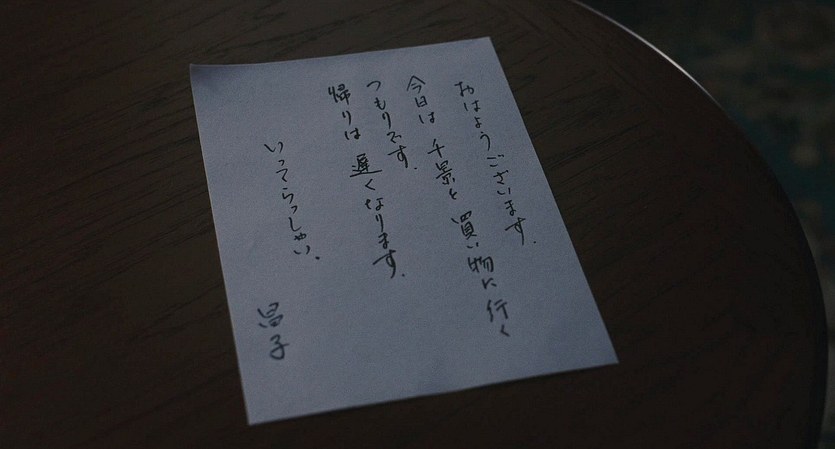 おはようございます。
今日は 千景と 買い物に行く
つもりです。
帰りは 遅くなります。
いってらっしゃい。
昌子